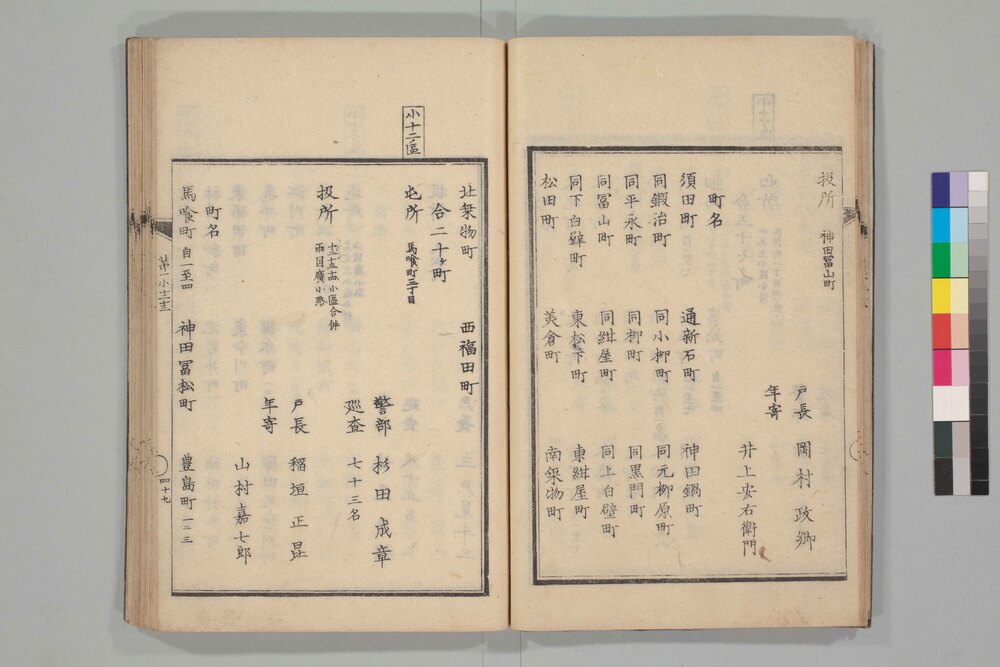 扱所 神田冨山町
戸長 岡村政郷
年寄
井上安右衛門
町名
須田町 通新石町 神田鍋町
同鍛治町 同小柳町 同元柳原町
同平永町 同柳町 同黒門町
同冨山町 同紺屋町 同上白壁町
同下白壁町 東松下町 東紺屋町
松田町 美倉町 南築物町
北築物町 西福田町
合二十ヶ町
小十二區
屯所 馬喰町三丁目
警部 杉田成章
廵査 七十三名
扱所 十二十三十四小區合併 両国廣小路
戸長 稲垣正昆
年寄
山村嘉七郎
町名
馬喰町 自一至四 神田冨松町 豊島町 一二三
第一小十二
四十九